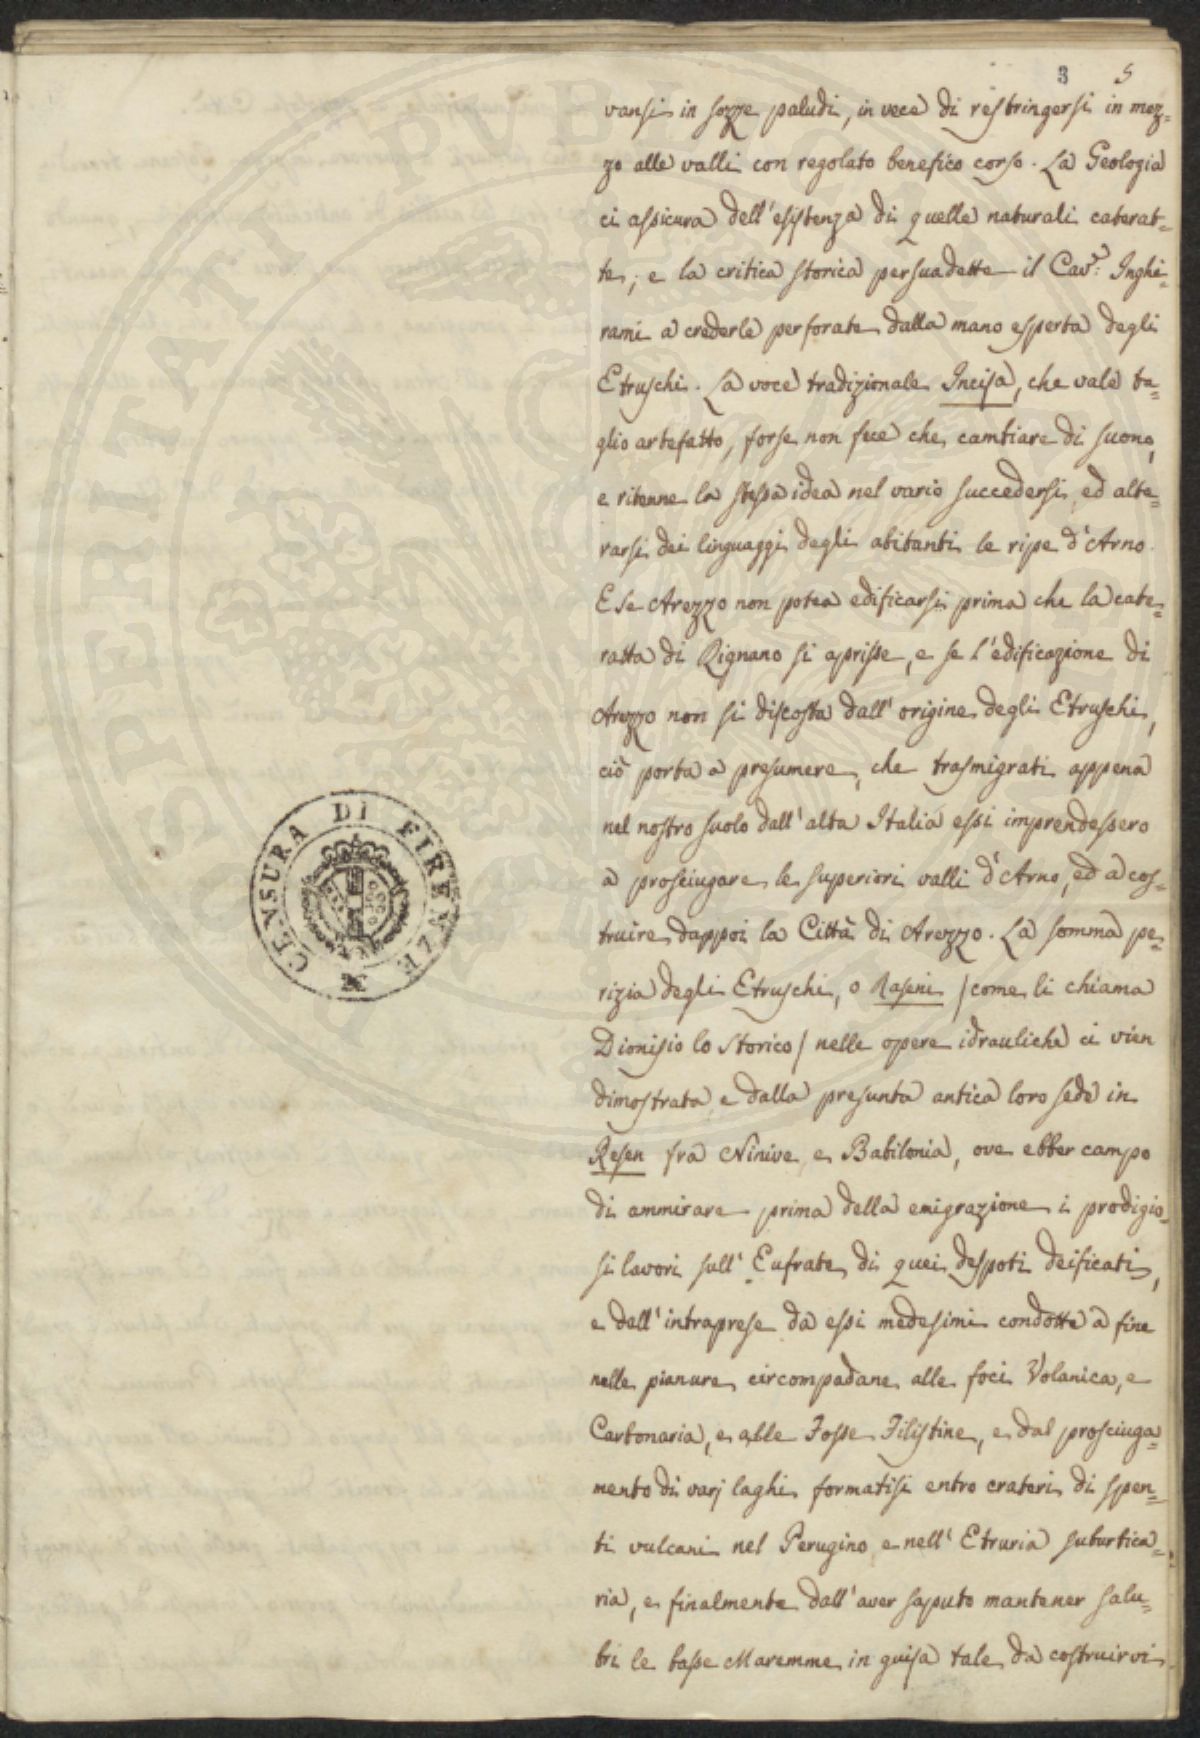 3 5
vansi in sozze paludi, in vece di restringersi in mez=
zo alle valli con regolato benefico corso. La Geologia
ci assicura dell'esistenza di quelle naturali caterat=
te; e la critica storica persuadette il Cav.e Inghi=
rami a crederle perforate dalla mano esperta degli
Etruschi. La voce tradizionale Incisa, che vale ta=
glio artefatto, forse non fece che cambiare di suono,
e ritenne la stessa idea nel vario succedersi, ed alte=
rarsi dei linguaggi degli abitanti le ripe d'Arno.
E se Arezzo non potea edificarsi prima che la cate=
ratta di Rignano si aprisse, e se l'edificazione di
Arezzo non si discosta dall'origine degli Etruschi,
ciò porta a presumere, che trasmigrati appena
nel nostro suolo dall'alta Italia essi imprendessero
a prosciugare le superiori valli d'Arno, ed a cos=
truire dappoi la Città di Arezzo. La somma pe=
rizia degli Etruschi, o Raseni /come li chiama
Dionisio lo Storico/ nelle opere idrauliche ci vien
dimostrata e dalla presunta antica loro sede in
Resen fra Ninive e Babilonia, ove ebber campo
di ammirare prima della emigrazione i prodigio=
si lavori sull'Eufrate di quei despoti deificati,
e dall'intraprese da essi medesimi condotte a fine
nelle pianure circompadane alle foci Volanica, e
Carbonaria, e alle Fosse Filistine, e dal prosciuga=
mento di varj laghi formatisi entro crateri di spen=
ti vulcani nel Perugino e nell'Etruria suburbica=
ria, e finalmente dall'aver saputo mantener salu=
bri le basse Maremme in guisa tale da costruirvi
CENSURA DI FIRENZE